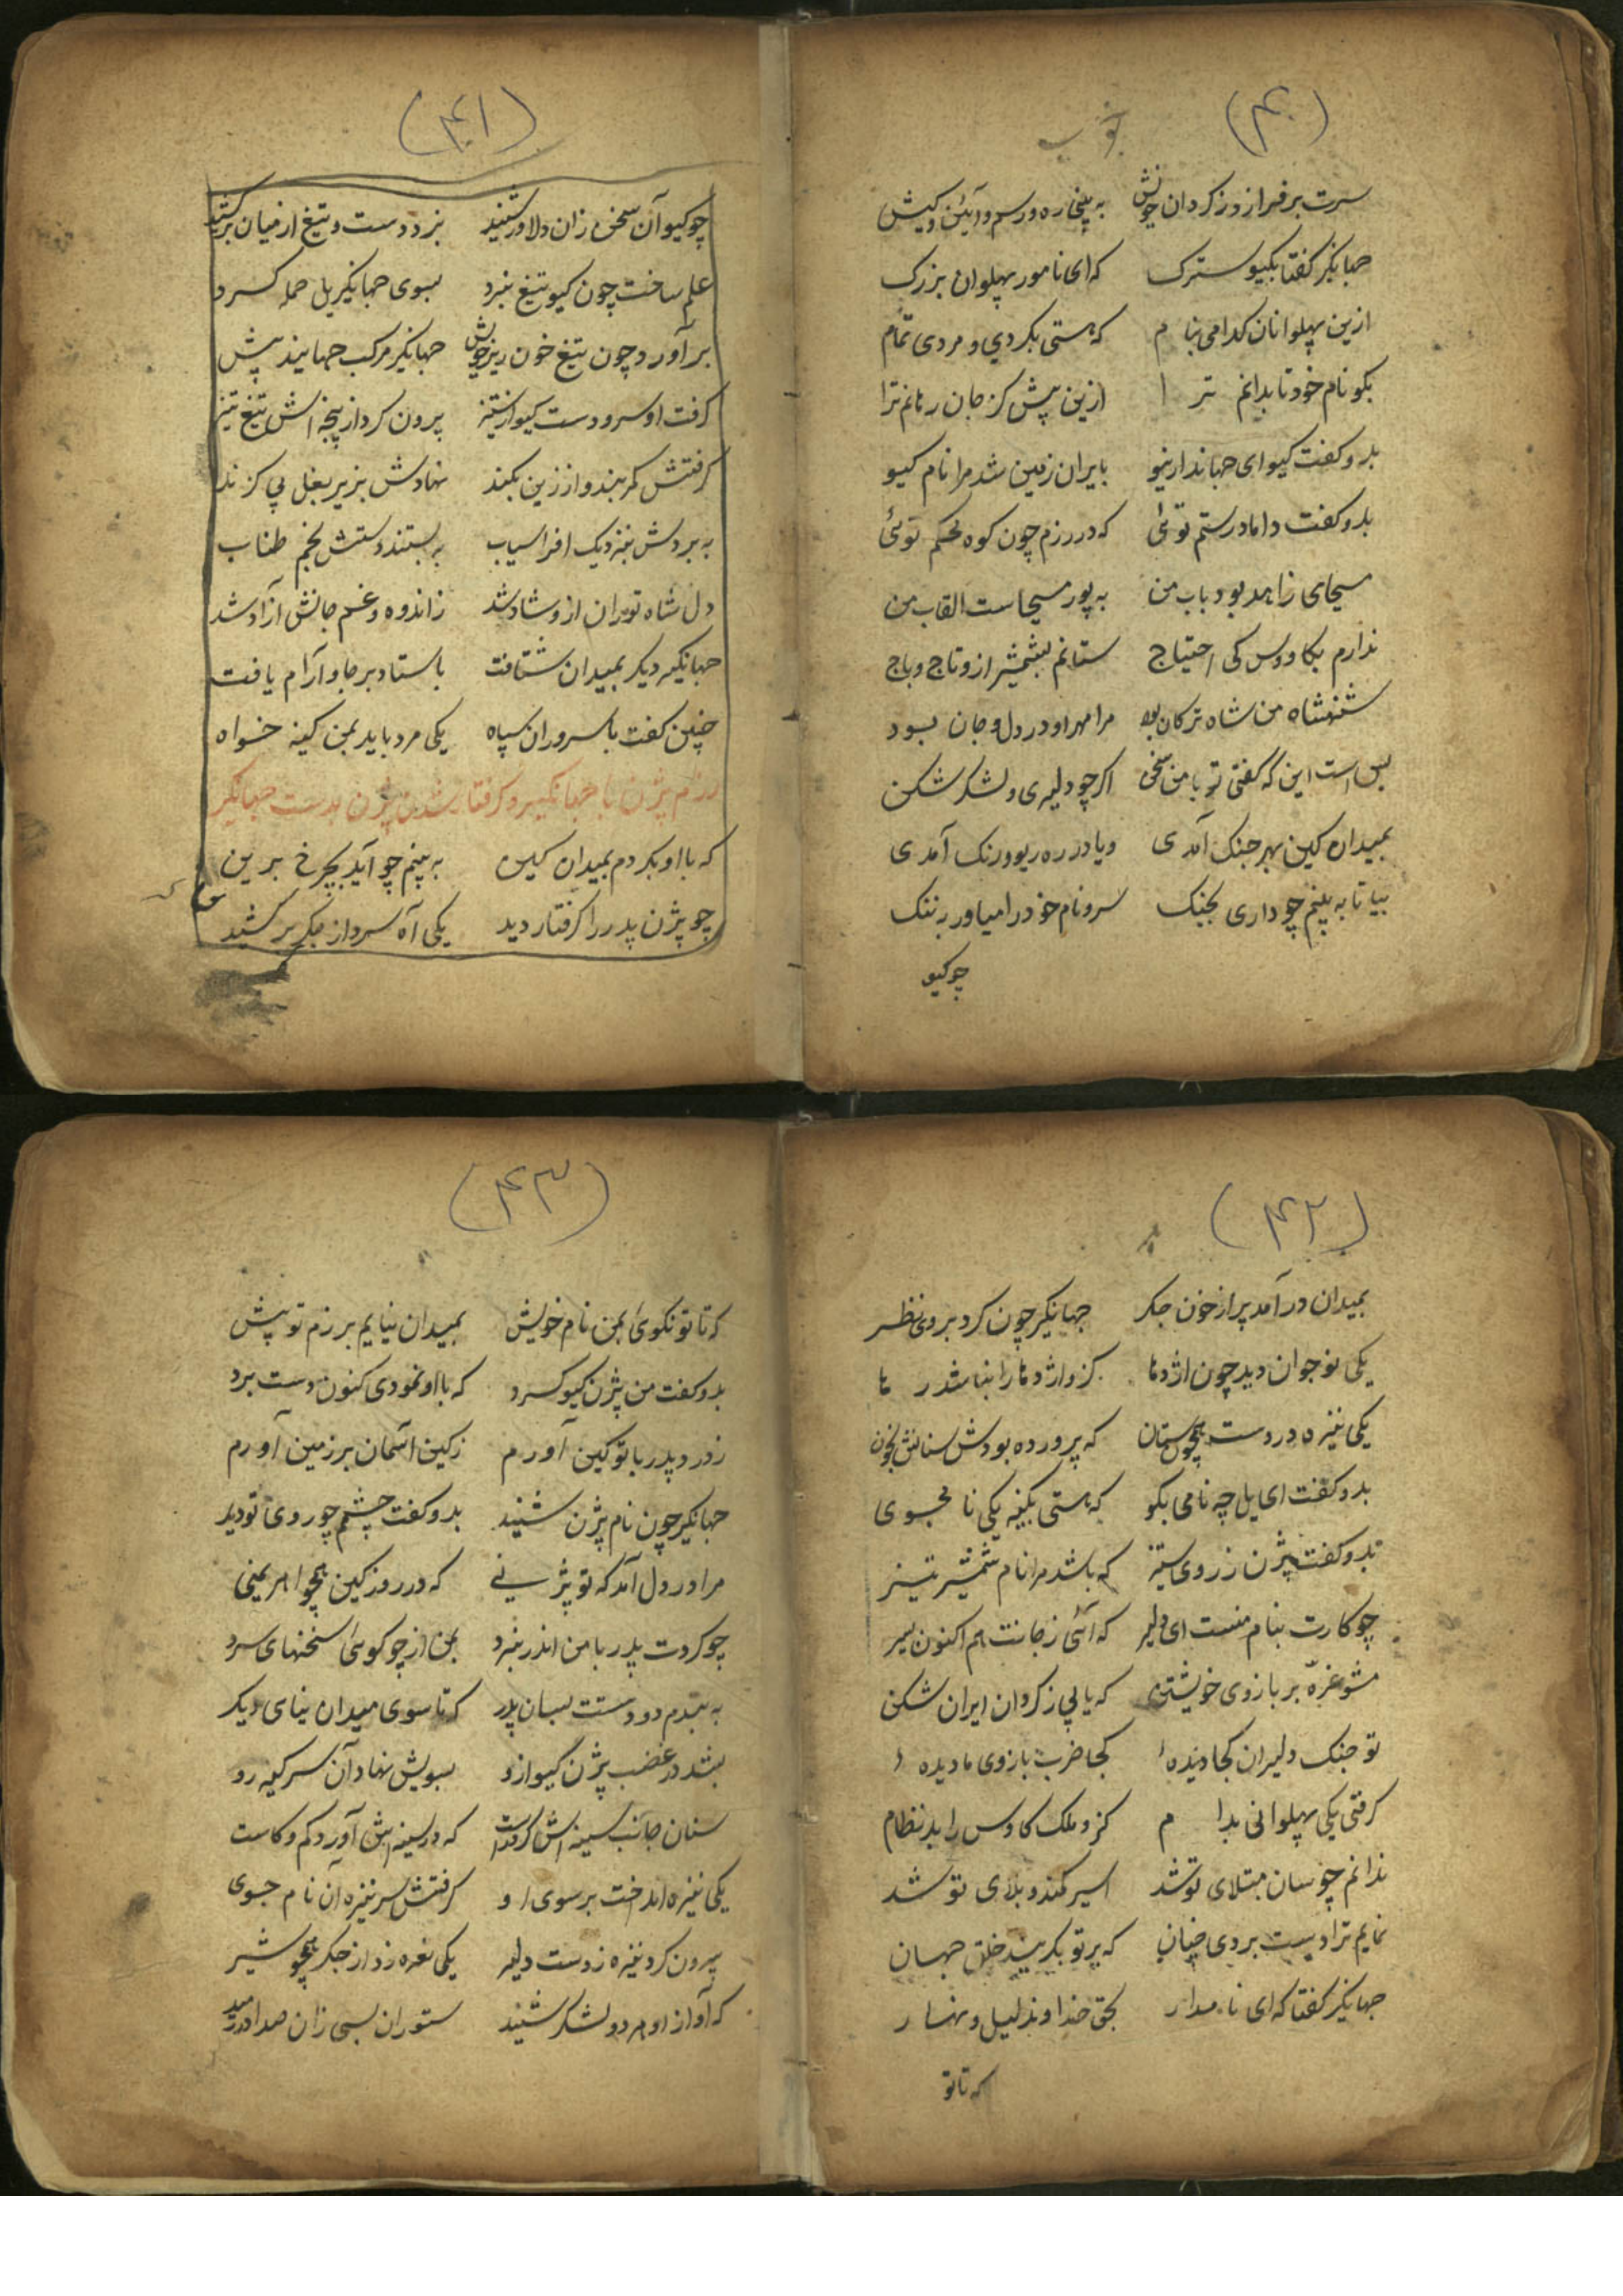 (۴۰)
سرت برفرازد ز کردان خویش به پنجاره و رسم و آئین و کیش
جهانگیر گفتا بگیو سترک که ای نامور پهلوان بزرک
ازین پهلوانان کدامی بنام که هستی بکردی و مردی تمام
بکو نام خود تا بدانم ترا ازین پیش کز جان رهانم ترا
بدو کفت کیو ای جهاندار نیو بایران زمین شد مرا نام کیو
بدو کفت داماد رستم توئی که در رزم چون کوه محکم توئی
مسیحای زاهد بود باب من به پور مسیحاست القاب من
ندارم بکاووس کی احتیاج ستانم بشمشیر ازو تاج و باج
شهنشاه من شاه ترکان بود مرا مهر او در دل و جان بود
بس است این که گفتی تو با من سخن اکر چو دلیری و لشکر شکن
بمیدان کین بهر جنک آمدی و یا در ره ریو و رنک آمدی
بیا تا به بینم چو داری بجنک سر و نام خود را میاور به ننک
چو کیو
(۴۱)
چو کیو آن سخن زان دلاور شنید بزد دست و تیغ از میان برکشید
علم ساخت چون کیو تیغ نبرد بسوی جهانگیر یل حمله کرد
برآورد چون تیغ خون ریز خویش جهانکیر مرکب جهانید پیش
کرفت او سر و دست کیو از ستیز برون کرد از پنجه اش تیغ تیز
کرفتش کمربند و از زین بکند نهادش بزیر بغل بی کزند
به بردش بنزدیک افراسیاب به بستند دستش بخم طناب
دل شاه توران ازو شاد شد ز اندوه و غم جانش آزاد شد
جهانگیر دیکر بمیدان شتافت باستاد بر جا و آرام یافت
چنین کفت با سروران سپاه یکی مرد باید بمن کینه خواه
رزم بیژن با جهانگیر و کرفتار شدن بیژن بدست جهانگیر
که با او بکردم بمیدان کین به بینم چو آید بچرخ برین
چو بیژن پدر را کرفتار دید یکی آه سرد از جکر برکشید
(۴۲)
بمیدان درآمد پر از خون جکر جهانکیر چون کرد بروی نظر
یکی نوجوان دید چون اژدها کزو اژدها را نباشد رها
یکی نیزه در دست همچون ستان که پرورده بودش سنانش بخون
بدو کفت ای یل چه نامی بکو که هستی بکینه یکی نامجوی
بدو کفت بیژن ز روی ستیز که باشد مرا نام شمشیر تیز
چو کارت بنام منست ای دلیر که آئی ز جانت هم اکنون سیر
مشو غره بر بازوی خویشتن که یا بی ز کردان ایران شکن
تو جنک دلیران کجا دیدهٔ کجا ضرب بازوی ما دیدهٔ
کرفتی یکی پهلوانی بدام کزو ملک کاوس را بد نظام
ندانم چو سان مبتلای تو شد اسیر کمند و بلای تو شد
نمایم ترا دست بردی چنان که بر تو بکرید خلق جهان
جهانکیر کفتا که ای نامدار بحق خداوند لیل و نهار
که تا تو
(۴۳)
که تا تو نکوی بمن نام خویش بمیدان نیایم برزم تو پیش
بدو کفت من بیژن کیو کرد که با او نمودی کنون دست برد
ز درد پدر با تو کین آورم ز کین آسمان بر زمین آورم
جهانکیر چون نام بیژن شنید بدو کفت چشمم چو روی تو دید
مرا در دل آمد که تو بیژنی که در روز کین همچو اهریمنی
چو کردت پدر با من اندر نبرد بمن از چو کوئی سخنهای سرد
به بندم دو دستت بسان پدر که تا سوی میدان نیای دیکر
بشد در غضب بیژن کیو ازو بسویش نهاد آن سر کینه رو
سنان جانب سینه اش کرد راست که در سینه اش آورد کم و کاست
یکی نیزه انداخت بر سوی او کرفتش سر نیزه آن نام جوی
برون کرد نیزه ز دست دلیر یکی نعره زد از جکر همچو شیر
که آواز او هر دو لشکر شنید ستوران بسی زان صدا در رمید